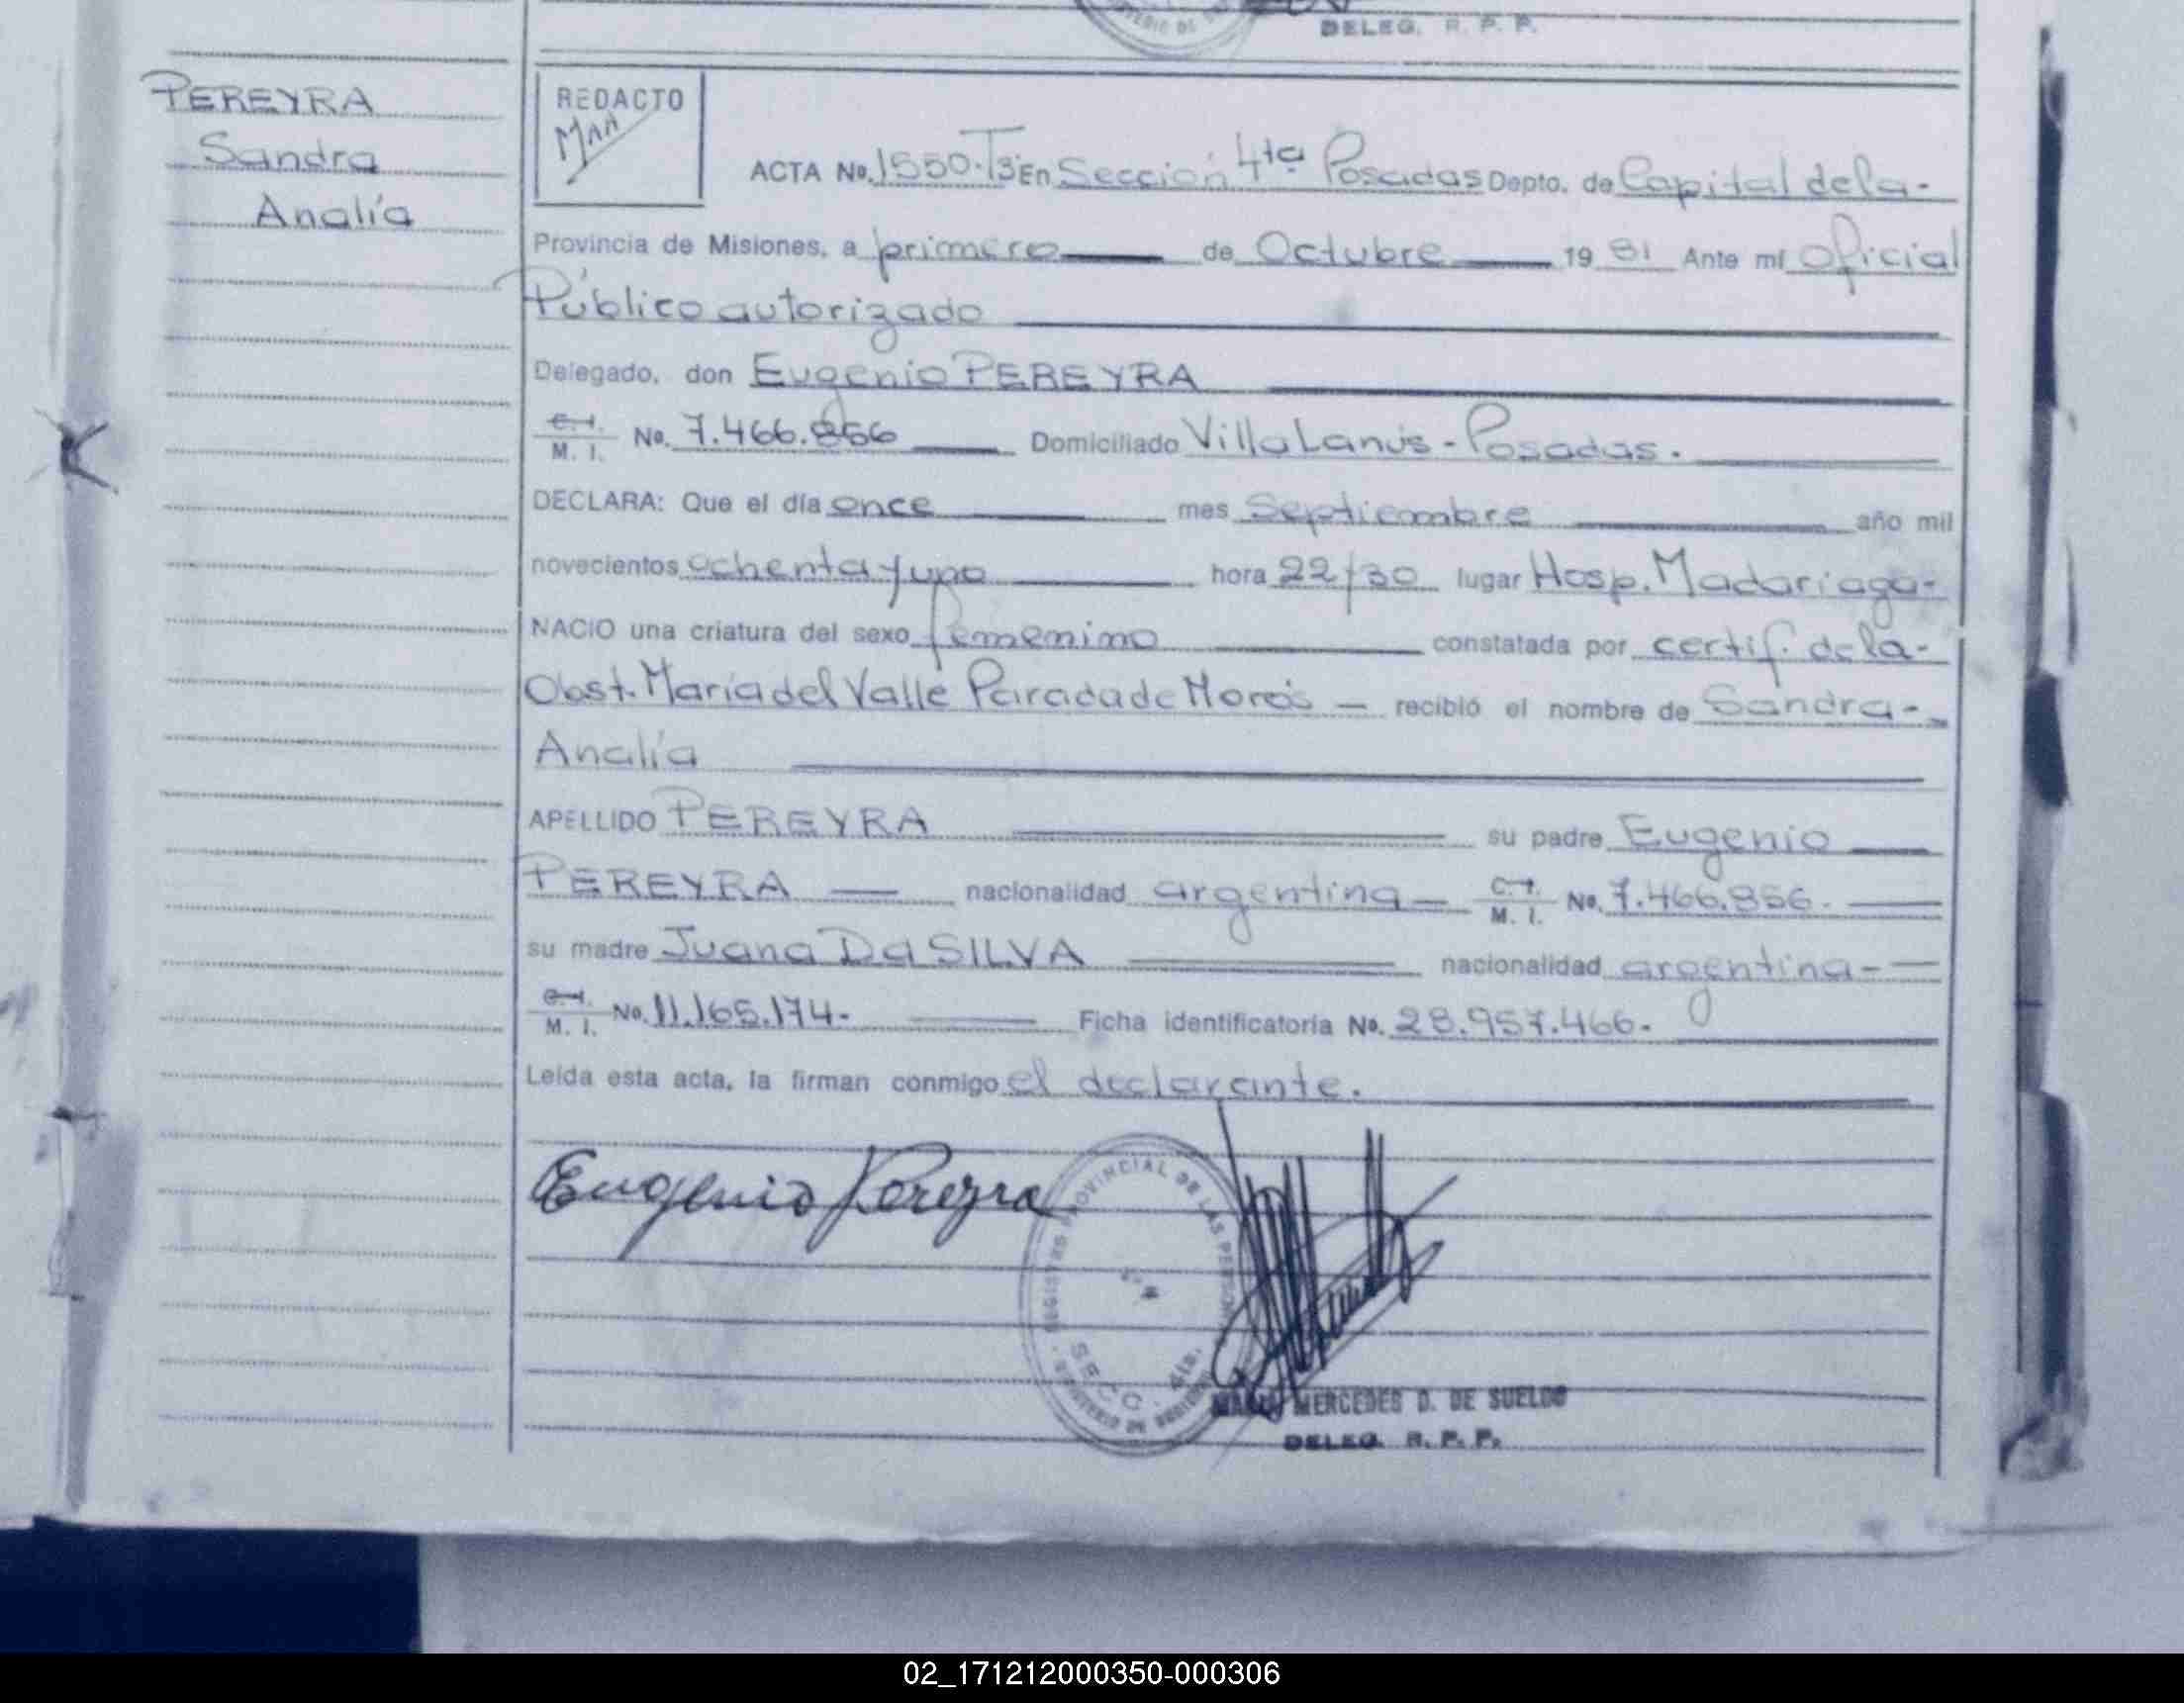 DELEG. R. P. P.
PEREYRA
Sandra
Analía
REDACTO
MAA
ACTA No. 1550-T3 En Sección 4ta Posadas Depto. de Capital de la-
Provincia de Misiones, a primero de Octubre 19 81 Ante mí Oficial
Público autorizado
Delegado, don Eugenio PEREYRA
C. I.
M. I. No. 7.466.856 Domiciliado Villa Lanús - Posadas.
DECLARA: Que el día once mes Septiembre año mil
novecientos ochenta y uno hora 22/30 lugar Hosp. Madariaga-
NACIO una criatura del sexo femenino constatada por certif. de la-
Obst. María del Valle Parada de Morós — recibió el nombre de Sandra-
Analía
APELLIDO PEREYRA su padre Eugenio
PEREYRA nacionalidad argentina C. I. M. I. No. 7.466.856.
su madre Juana Da SILVA nacionalidad argentina-
C. I.
M. I. No. 11.165.174.- Ficha identificatoria No. 28.957.466.
Leída esta acta, la firman conmigo el declarante.
Eugenio Pereyra
REGISTRO PROVINCIAL DE LAS PERSONAS
SECC. 4ta.
MERCEDES D. DE SUELDO
DELEG. R. P. P.
02_171212000350-000306